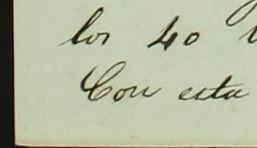 los 40
Con esta